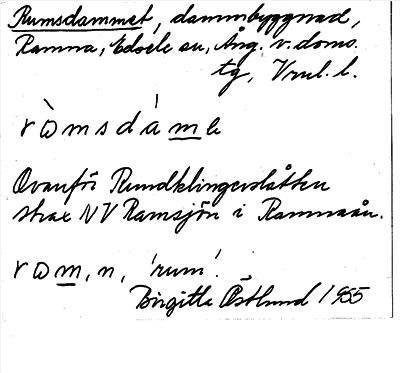 Rumsdammet, dammbyggnad,
Ramna, Edsele sn, Ång. v. doms.
tg, Vrml. l.
ròmsdám̲e
Ovanför Rundklingerslåtten
strax NV Ramsjön i Ramnaån.
rom̲, n, 'rum'.
Birgitta Östlund 1955